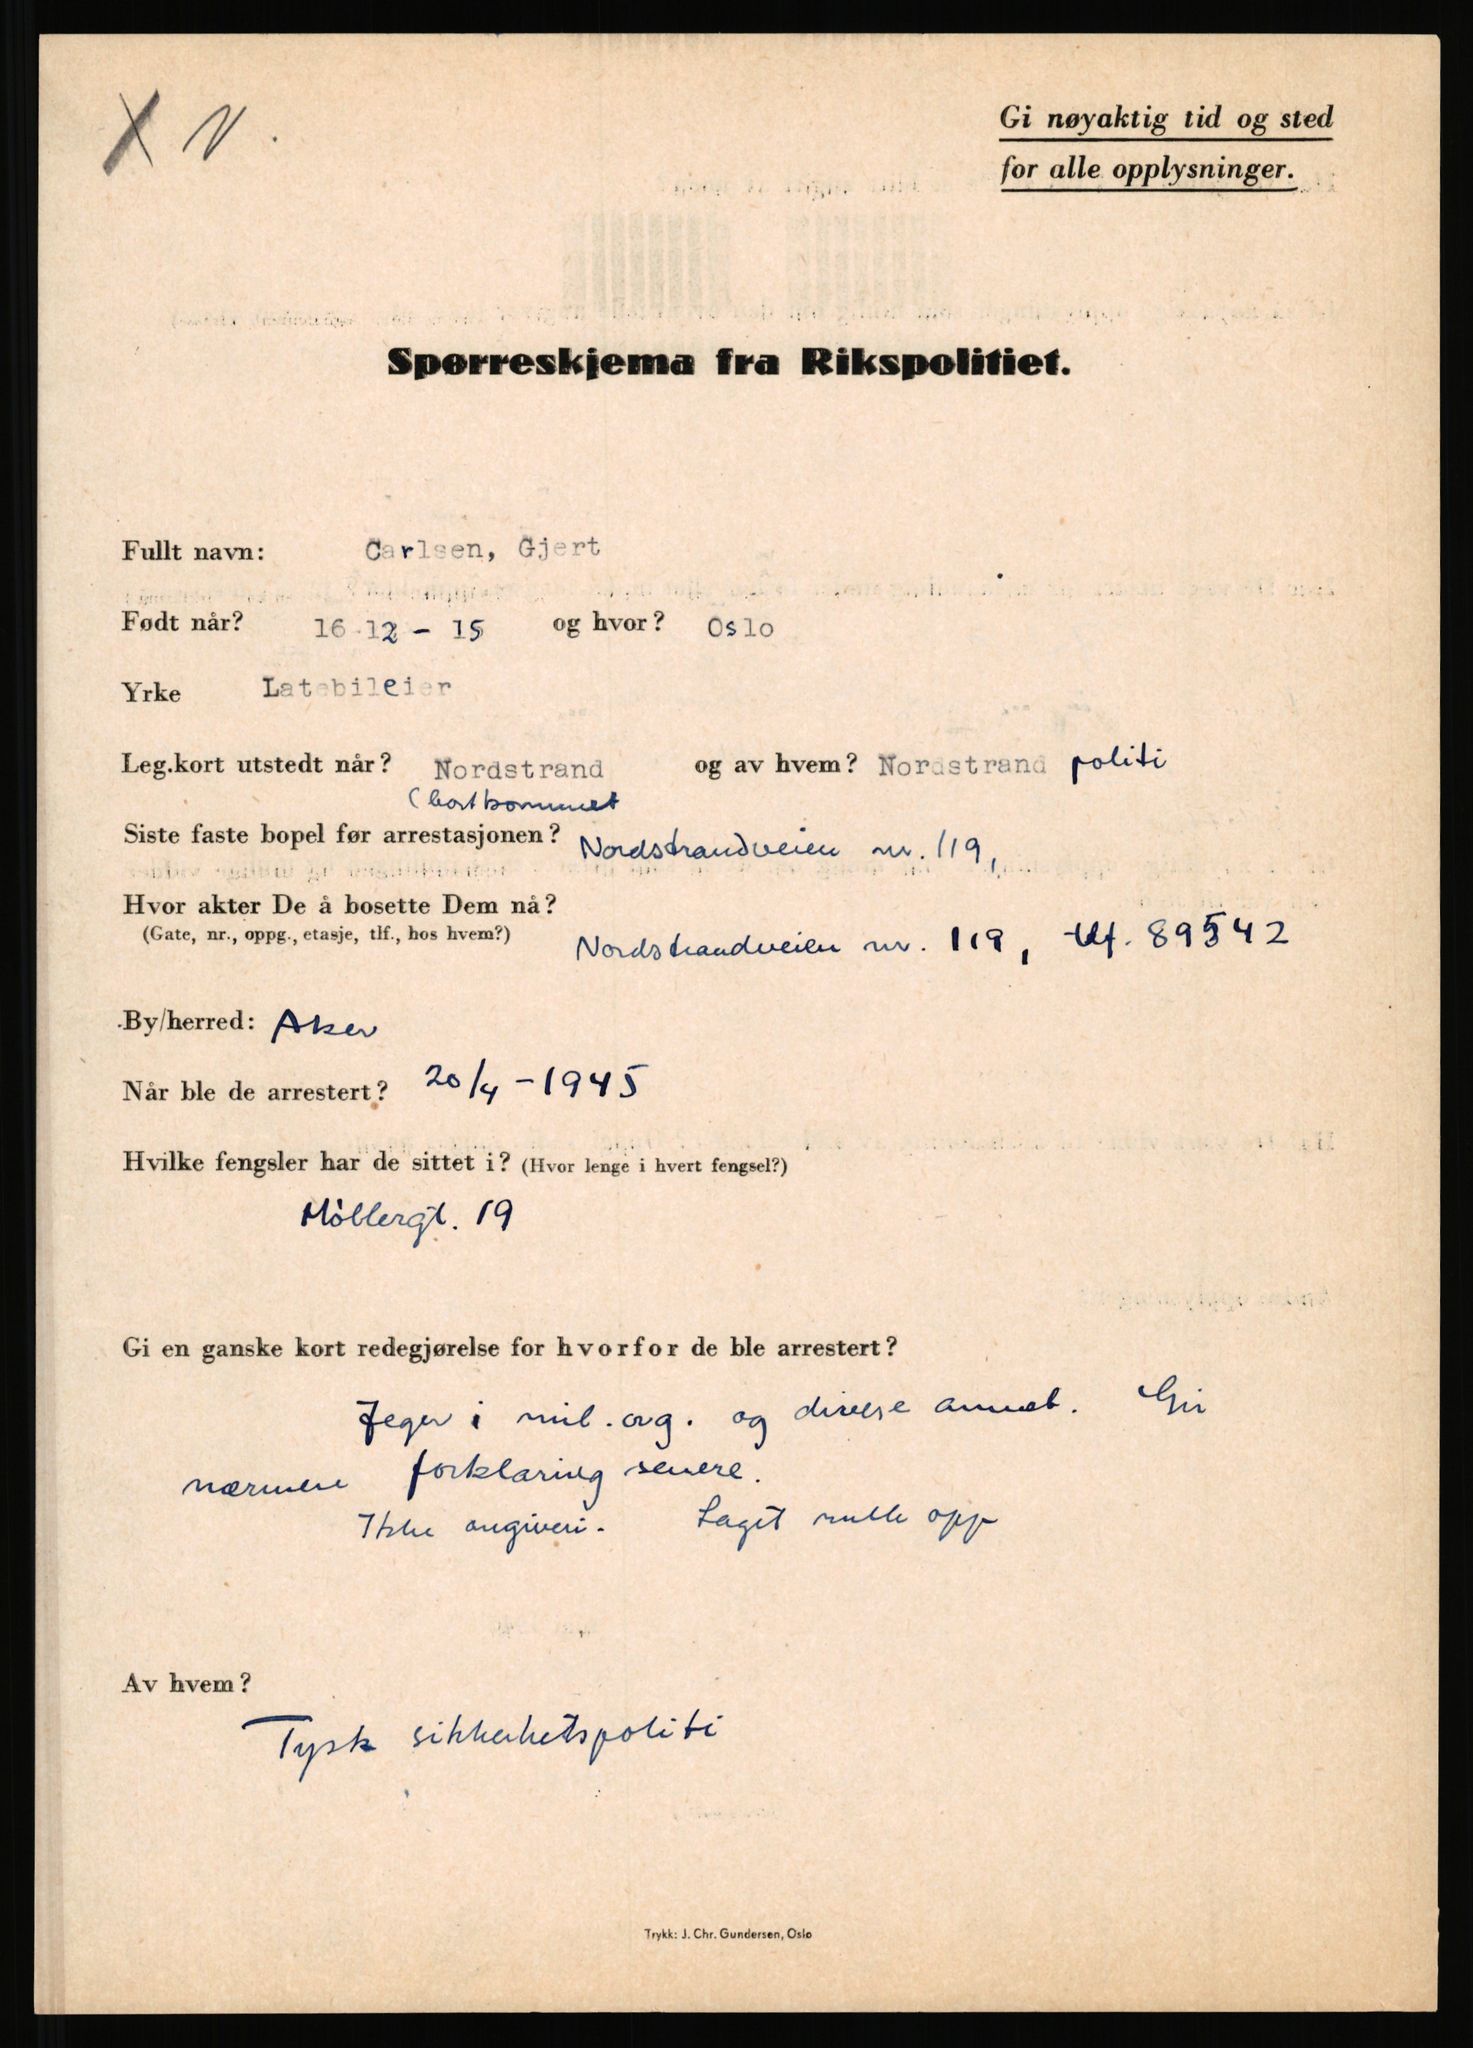 X V.
Gi nøyaktig tid og sted
for alle opplysninger.
Spørreskjema fra Rikspolitiet.
Fullt navn: Carlsen, Gjert
Født når? 16 12 - 15 og hvor? Oslo
Yrke Latebileier
Leg.kort utstedt når? Nordstrand og av hvem? Nordstrand politi
(bortkommet
Siste faste bopel før arrestasjonen? Nordstrandveien nr. 119,
Hvor akter De å bosette Dem nå?
(Gate, nr., oppg., etasje, tlf., hos hvem?) Nordstrandveien nr. 119, tlf. 89542
By/herred: Aker
Når ble de arrestert? 20/4 - 1945
Hvilke fengsler har de sittet i? (Hvor lenge i hvert fengsel?)
Möllergt. 19
Gi en ganske kort redegjørelse for hvorfor de ble arrestert?
Jeger i mil. org. og diverse annet. Gir
nærmere forklaring senere.
Ikke angiveri. Laget rulle opp
Av hvem?
Tysk sikkerhetspoliti
Trykk: J. Chr. Gundersen, Oslo